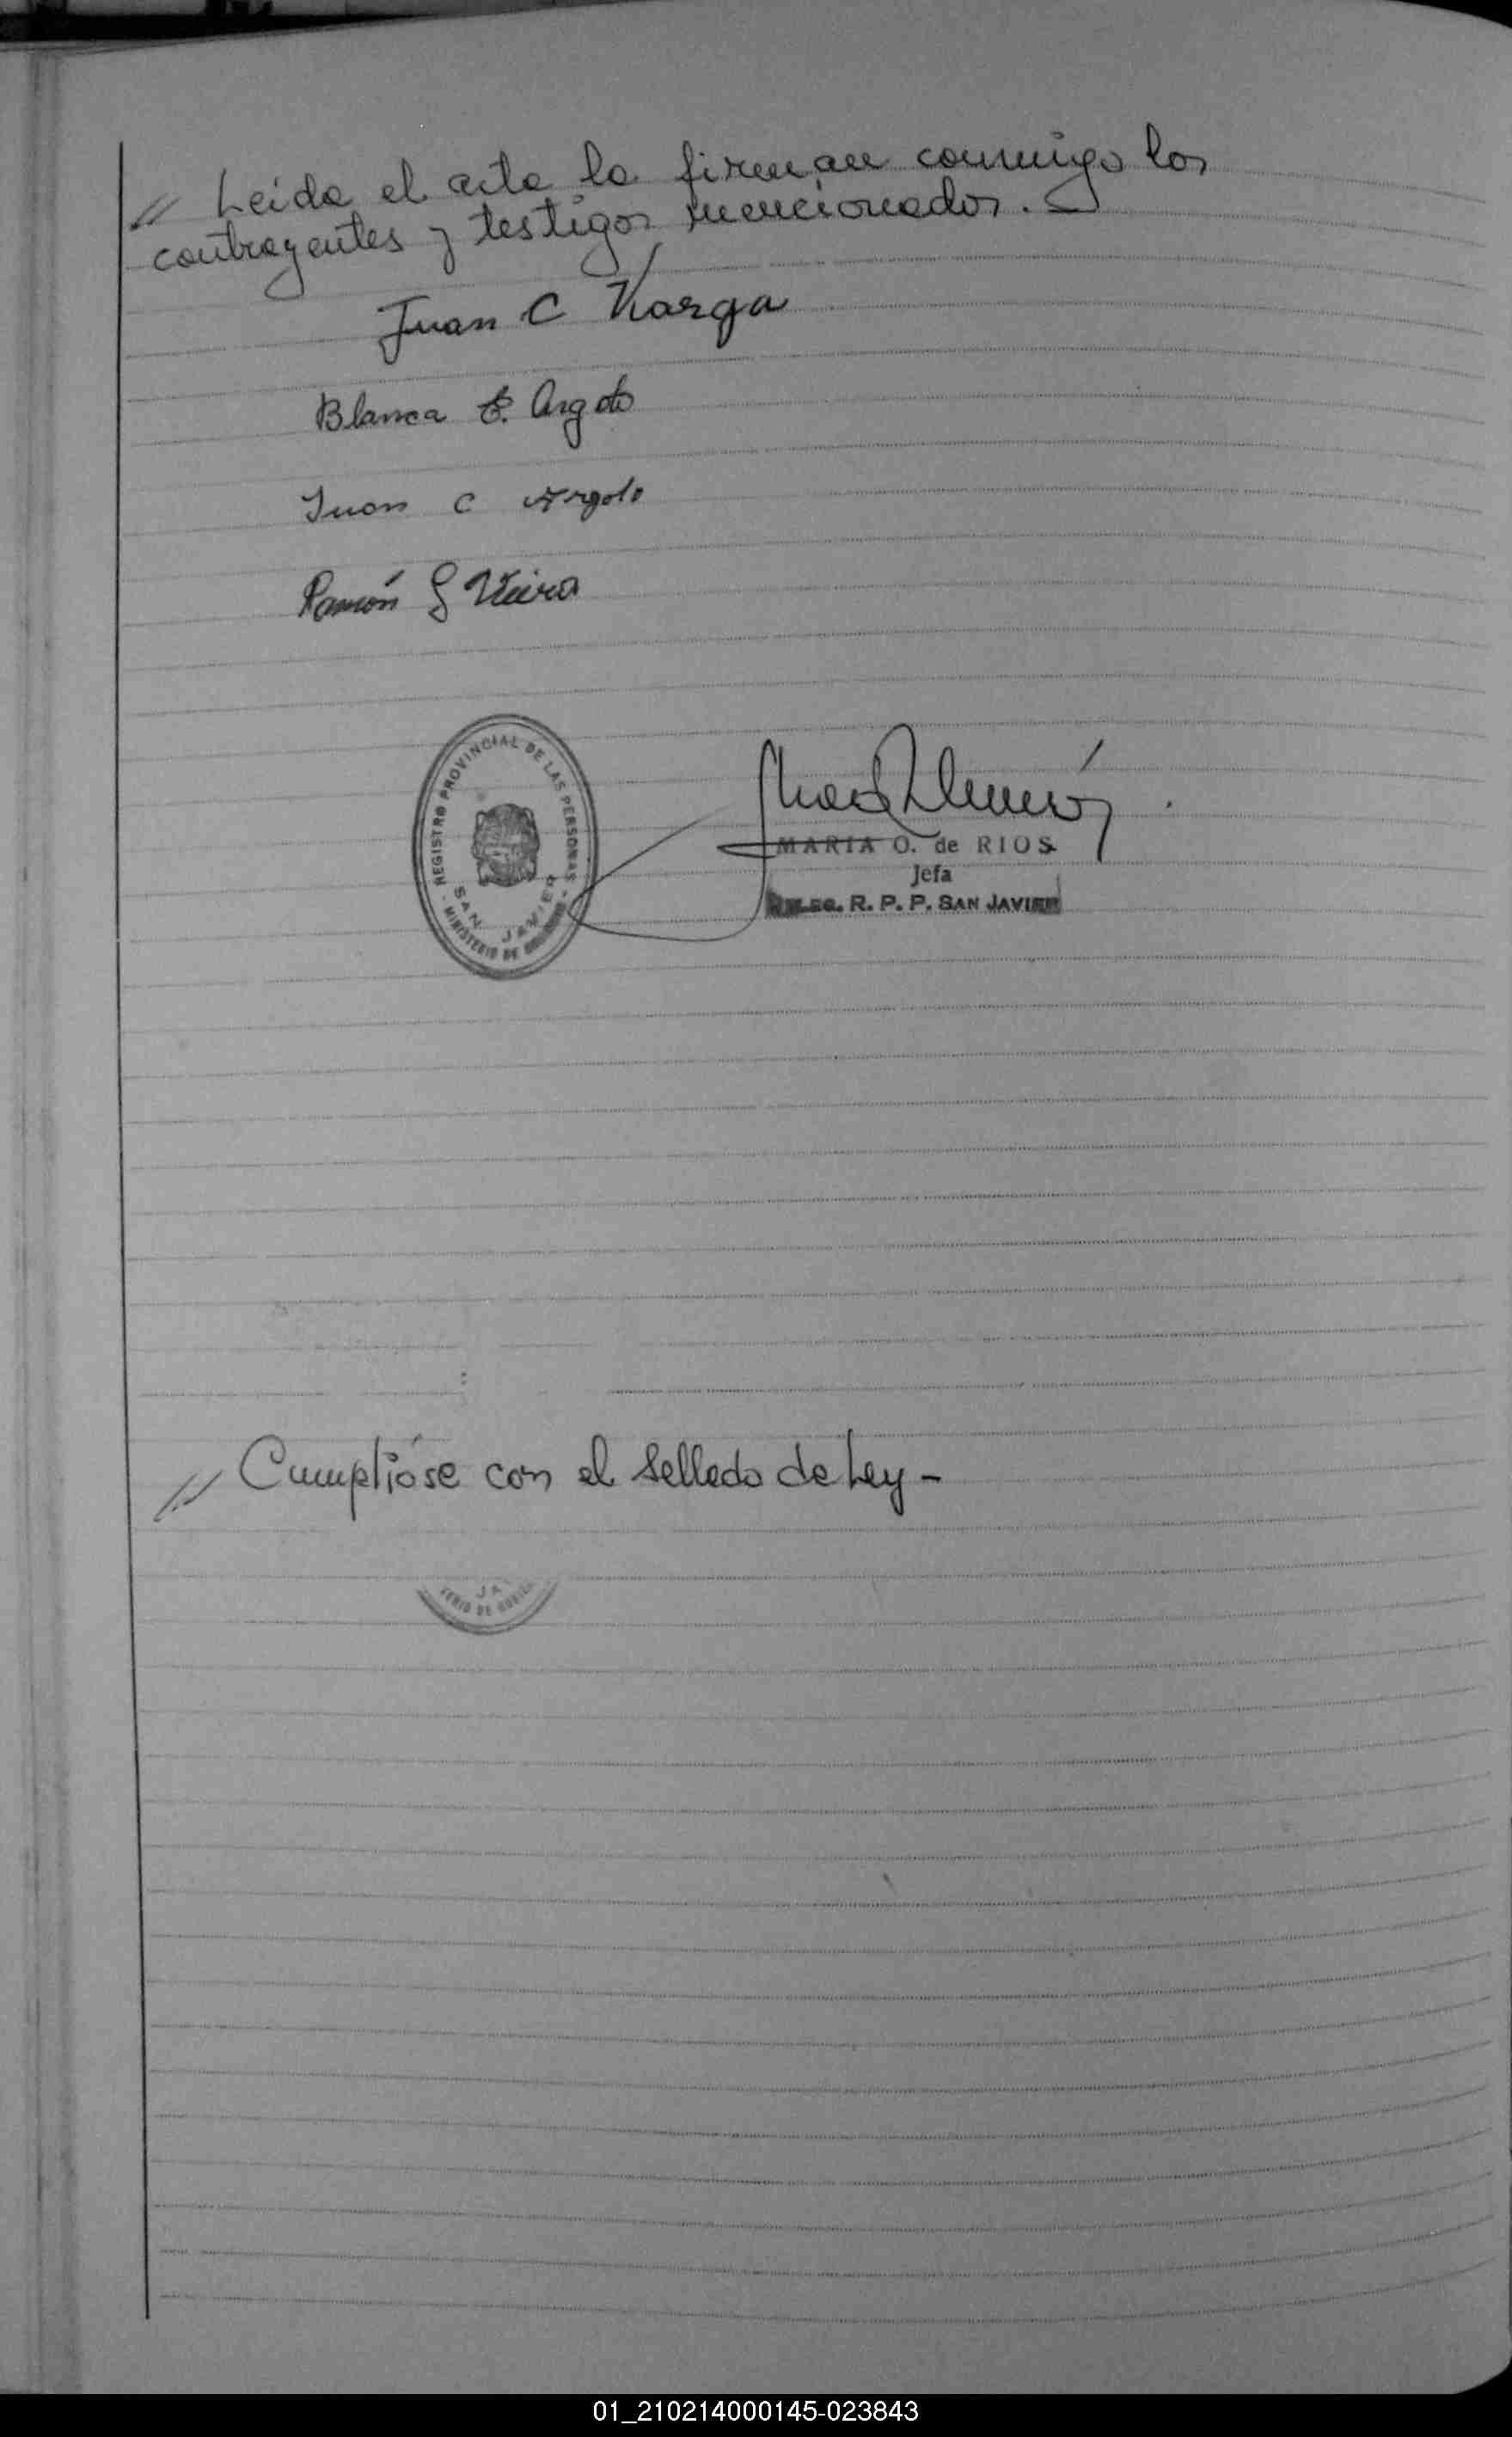 // Leida el acta la firman conmigo los
contrayentes y testigos mencionados. -
Juan C Varga
Blanca E. Argoto
Juan C Argoto
Ramón Vieira
REGISTRO PROVINCIAL DE LAS PERSONAS
SAN JAVIER
- MINISTERIO DE
MARIA O. de RIOS
Jefa
R. P. P. SAN JAVIER
// Cumplióse con el Sellado de Ley -
JA
TERIO DE GOBIE
01_210214000145-023843